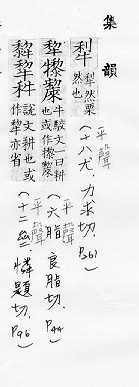 集韻
犁然栗
然也
平聲
(十八尤,力求切,P261)
牛駁文一曰耕
也或作
平聲
(六脂,良脂切,P44)
說文耕也或
作犂亦省
平聲
(十二齊,憐題切,P96)